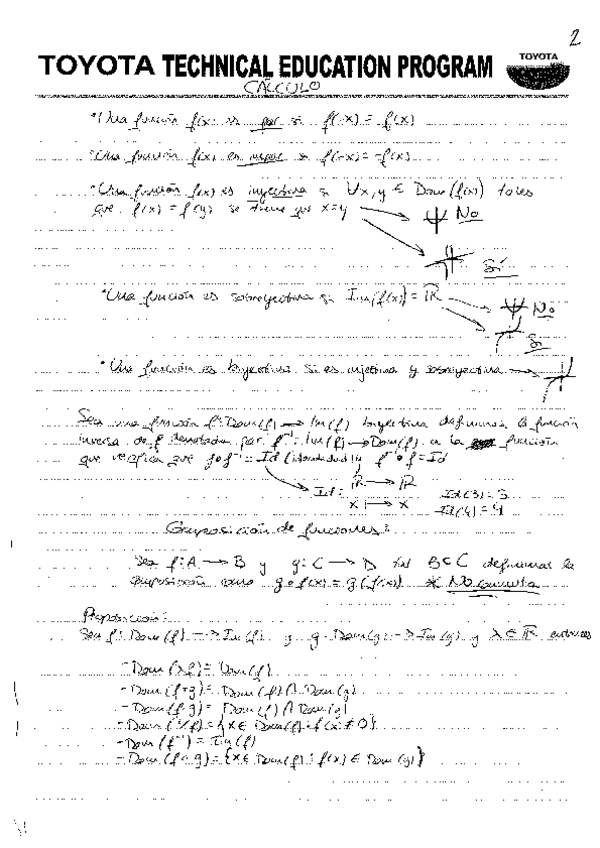 2
TOYOTA TECHNICAL EDUCATION PROGRAM
TOYOTA
CÁLCULO
*Una función f(x) es par si f(-x) = f(x)
*Una función f(x) es impar si f(-x) = -f(x)
*Una función f(x) es inyectiva si ∀x,y ∈ Dom(f(x)) tales
que f(x) = f(y) se tiene que x=y
No
Sí
*Una función es sobreyectiva si Im(f(x)) = ℝ
No
Sí
*Una función es biyectiva si es inyectiva y sobreyectiva
Sea una función f: Dom(f) → Im(f) biyectiva definimos la función
inversa de f denotada por f⁻¹: Im(f) → Dom(f) a la función
que verifica que f∘f⁻¹ = Id (identidad) y f⁻¹∘f = Id
Id: ℝ → ℝ
x ↦ x
Id(3) = 3
Id(4) = 4
Composición de funciones:
Sea f: A → B y g: C → D tal B⊂C definimos la
composición como g∘f(x) = g(f(x)) * No conmuta
Proposición:
Sea f: Dom(f) → Im(f) y g: Dom(g) → Im(g) y λ ∈ ℝ entonces
- Dom(λf) = Dom(f)
- Dom(f+g) = Dom(f) ∩ Dom(g)
- Dom(f·g) = Dom(f) ∩ Dom(g)
- Dom(1/f) = {x ∈ Dom(f) : f(x) ≠ 0}
- Dom(f⁻¹) = Im(f)
- Dom(f∘g) = {x ∈ Dom(f) : f(x) ∈ Dom(g)}